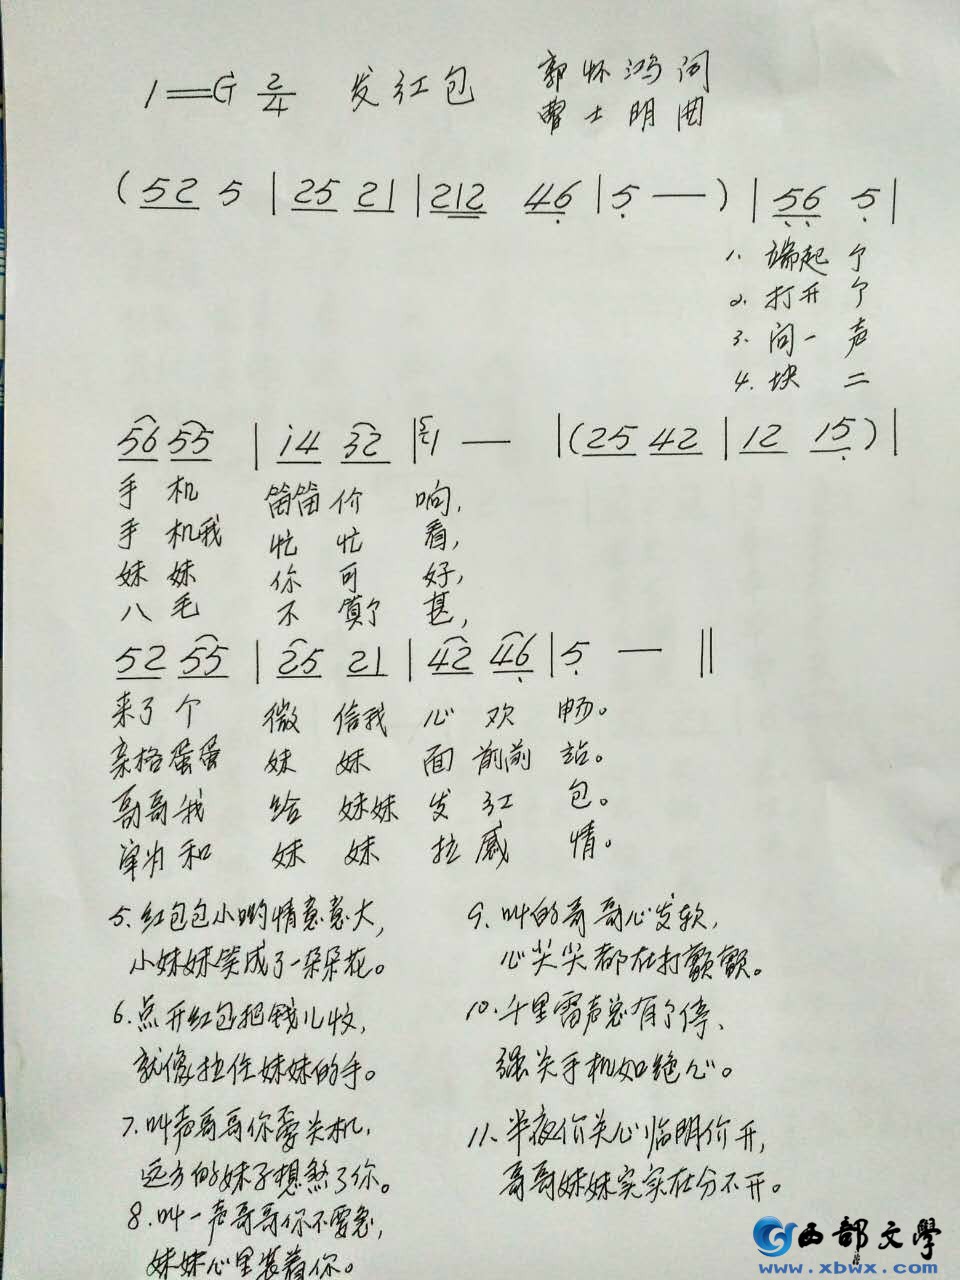 1=G 2/4 发红包 郭怀鸿词
曹士明曲
(52 5 | 25 21 | 212 46 | 5 — ) | 56 5 |
1. 端起个
2. 打开个
3. 问一声
4. 块二
56 55 | i4 32 | 1 — | (25 42 | 12 15) |
手机 笛笛价响,
手机我忙忙看,
妹妹你可好,
八毛不算了甚,
52 55 | 25 21 | 42 46 | 5 — ‖
来了个微信我心欢畅。
亲格蛋蛋妹妹面前前站。
哥哥我给妹妹发红包。
单为和妹妹拉感情。
5. 红包包小哟情意意大,
小妹妹笑成了一朵朵花。
6. 点开红包把钱儿收,
就像拉住妹妹的手。
7. 叫声哥哥你要关机,
远方的妹子想煞了你。
8. 叫一声哥哥你不要急,
妹妹心里装着你。
9. 叫的哥哥心发软,
心尖尖都在打颤颤。
10. 千里雷声总有了停、
强关手机如绝心。
11. 半夜价关心临明价开,
哥哥妹妹实实在分不开。
西部文學
www.xbwx.com